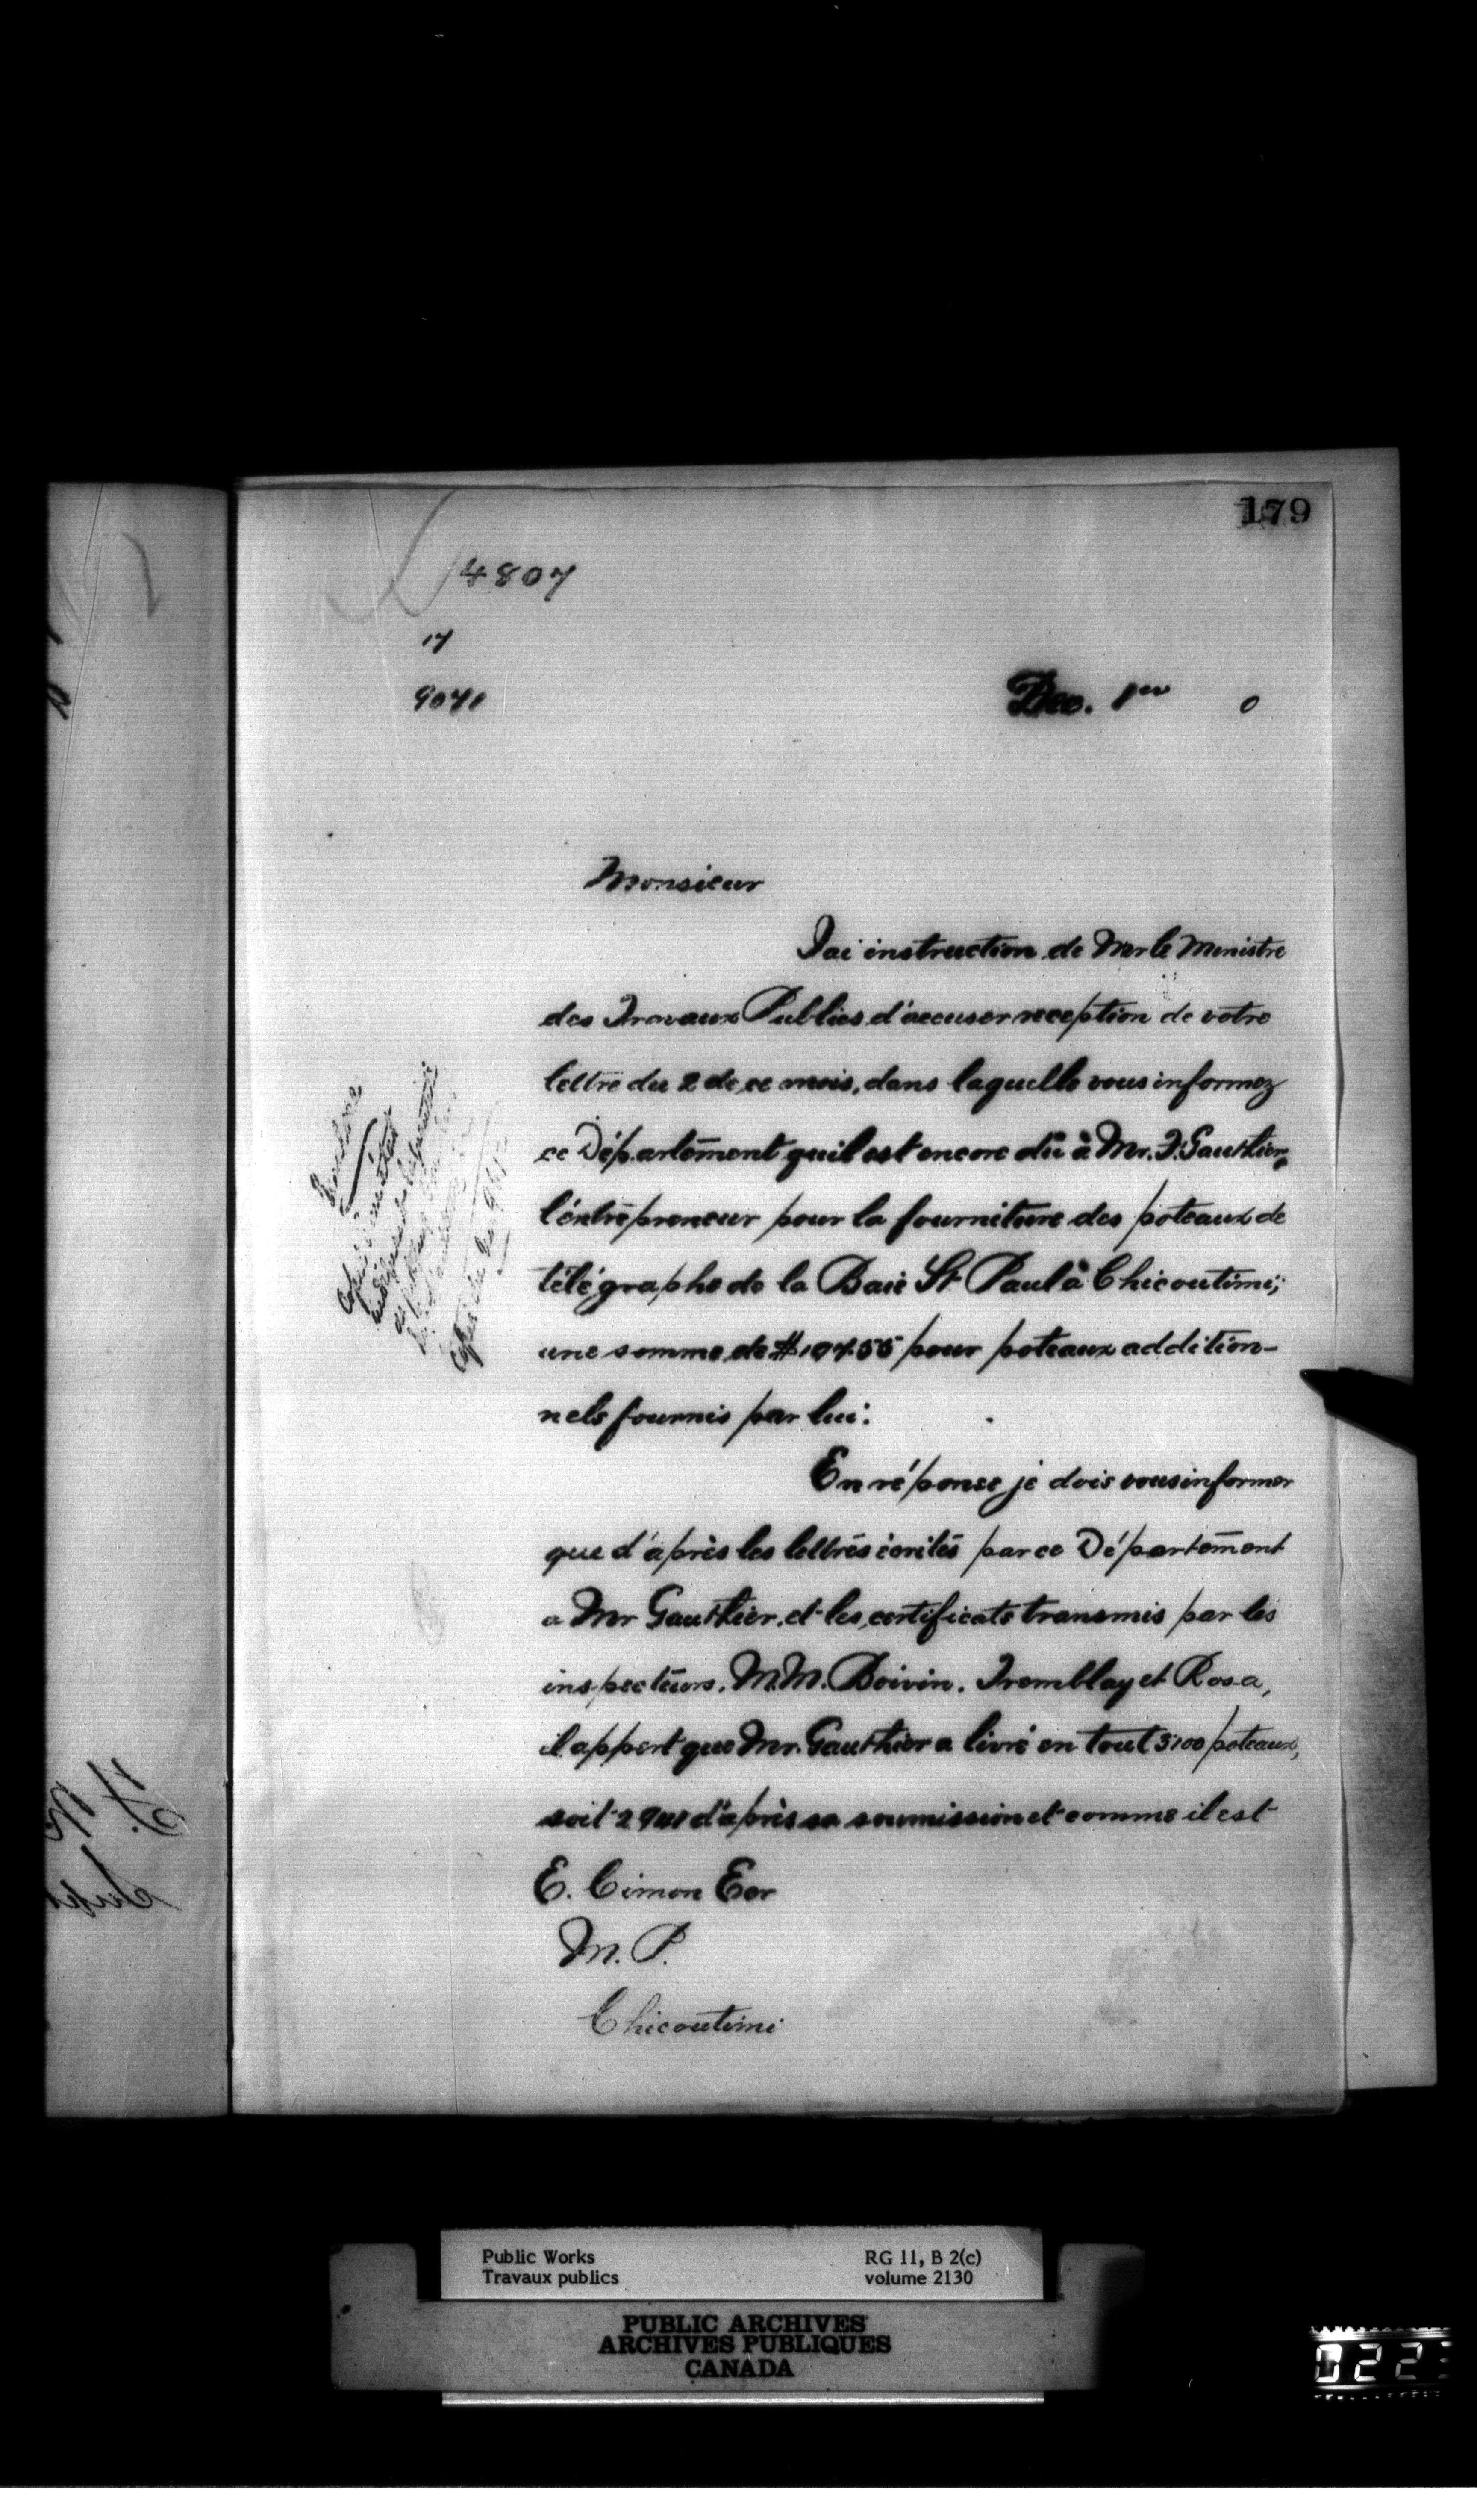 179
14807
17
9071
Dec. 1er 0
Monsieur
J'ai instruction de Mr le Ministre
des Travaux Publics d'accuser reception de votre
lettre du 2 de ce mois, dans laquelle vous informez
ce Département qu'il est encore dû à Mr. F. Gauthier,
l'entrepreneur pour la fourniture des poteaux de
télégraphe de la Baie St Paul à Chicoutimi;
une somme de pour poteaux addition-
nels fournis par lui:
En réponse je dois vous informer
que d'après les lettres écrites par ce Département
a Mr Gauthier, et les certificats transmis par les
inspecteurs, M.M. Boivin, Tremblay et Rosa,
il appert que Mr. Gauthier a livré en tout 3100 poteaux,
soit d'après sa soumission et comme il est
E. Cimon Ecr
M. P.
Chicoutimi
Public Works
Travaux publics
RG 11, B 2(c)
volume 2130
PUBLIC ARCHIVES
ARCHIVES PUBLIQUES
CANADA